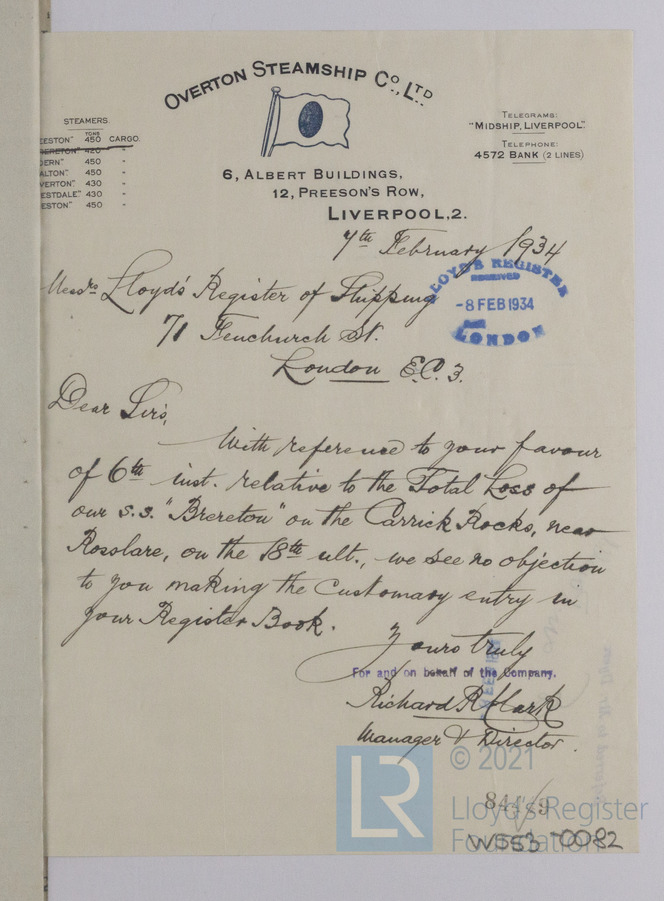 OVERTON STEAMSHIP Co., LTD.
STEAMERS.
TONS
EESTON" 450 CARGO.
BRERETON" 420 "
GERN" 450 "
ALTON" 450 "
VERTON" 430 "
ESTDALE" 430 "
ESTON" 450 "
TELEGRAMS:
"MIDSHIP, LIVERPOOL".
TELEPHONE:
4572 BANK (2 LINES)
6, ALBERT BUILDINGS,
12, PREESON'S ROW,
LIVERPOOL, 2.
7th February 1934
Messrs Lloyd's Register of Shipping
71 Fenchurch St.
London E.C. 3.
LLOYD'S REGISTER
RECEIVED
-8 FEB 1934
LONDON
Dear Sirs,
With reference to your favour
of 6th inst. relative to the Total Loss of
our s.s. "Brereton" on the Carrick Rocks, near
Rosslare, on the 18th ult., we see no objection
to you making the customary entry in
your Register Book.
Yours truly
For and on behalf of the Company.
Richard R Clark
Manager & Director.
© 2021
LR
Lloyd's Register
Foundation
W553-0082